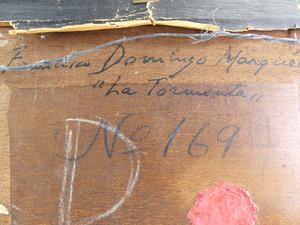 Francisco Domingo Marques
"La Tormenta"
No 169
D